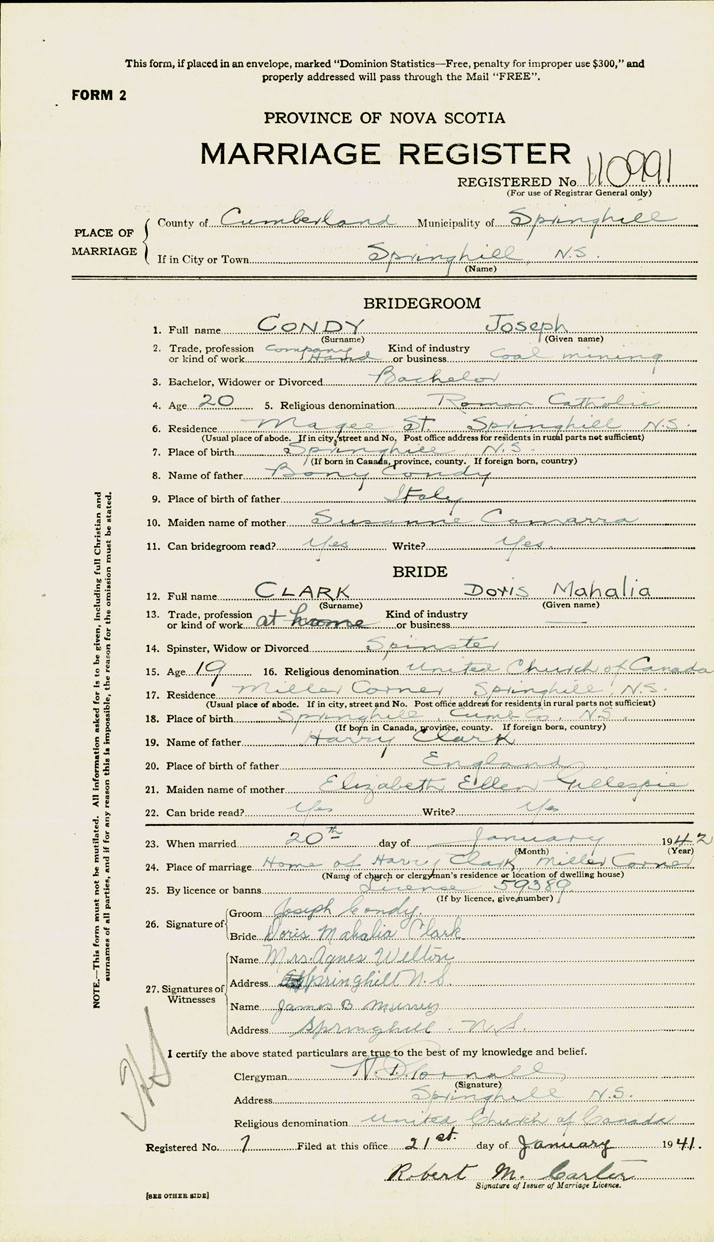 This form, if placed in an envelope, marked "Dominion Statistics—Free, penalty for improper use $300," and
properly addressed will pass through the Mail "FREE".
FORM 2
PROVINCE OF NOVA SCOTIA
MARRIAGE REGISTER
REGISTERED No. 110991
(For use of Registrar General only)
PLACE OF MARRIAGE
County of Cumberland Municipality of Springhill
If in City or Town Springhill, N.S.
(Name)
BRIDEGROOM
1. Full name CONDY Joseph
(Surname) (Given name)
2. Trade, profession or kind of work Company Hand Kind of industry or business Coal mining
3. Bachelor, Widower or Divorced Bachelor
4. Age 20 5. Religious denomination Roman Catholic
6. Residence Magee St. Springhill N.S.
(Usual place of abode. If in city, street and No. Post office address for residents in rural parts not sufficient)
7. Place of birth Springhill N.S.
(If born in Canada, province, county. If foreign born, country)
8. Name of father Bony Condy
9. Place of birth of father Italy
10. Maiden name of mother Susanne Camarra
11. Can bridegroom read? Yes Write? Yes.
BRIDE
12. Full name CLARK Doris Mahalia
(Surname) (Given name)
13. Trade, profession or kind of work at home Kind of industry or business —
14. Spinster, Widow or Divorced Spinster
15. Age 19 16. Religious denomination United Church of Canada
17. Residence Miller Corner Springhill N.S.
(Usual place of abode. If in city, street and No. Post office address for residents in rural parts not sufficient)
18. Place of birth Springhill, Cumb Co. N.S.
(If born in Canada, province, county. If foreign born, country)
19. Name of father Harry Clark
20. Place of birth of father England
21. Maiden name of mother Elizabeth Ellen Gillespie
22. Can bride read? Yes Write? Yes
23. When married 20th day of January 1942
(Month) (Year)
24. Place of marriage Home of Harry Clark, Miller Corner
(Name of church or clergyman's residence or location of dwelling house)
25. By licence or banns License 59389
(If by licence, give number)
26. Signature of
Groom Joseph Condy.
Bride Doris Mahalia Clark
27. Signatures of Witnesses
Name Mrs. Agnes Welton
Address Springhill N.S.
Name James B Murray
Address Springhill N.S.
I certify the above stated particulars are true to the best of my knowledge and belief.
Clergyman N. D.
(Signature)
Address Springhill N.S.
Religious denomination United Church of Canada
Registered No. 7 Filed at this office 21st. day of January 1941.
Robert M. Carter
Signature of Issuer of Marriage Licence.
[SEE OTHER SIDE]
NOTE.—This form must not be mutilated. All information asked for is to be given, including full Christian and
surnames of all parties, and if for any reason this is impossible, the reason for the omission must be stated.